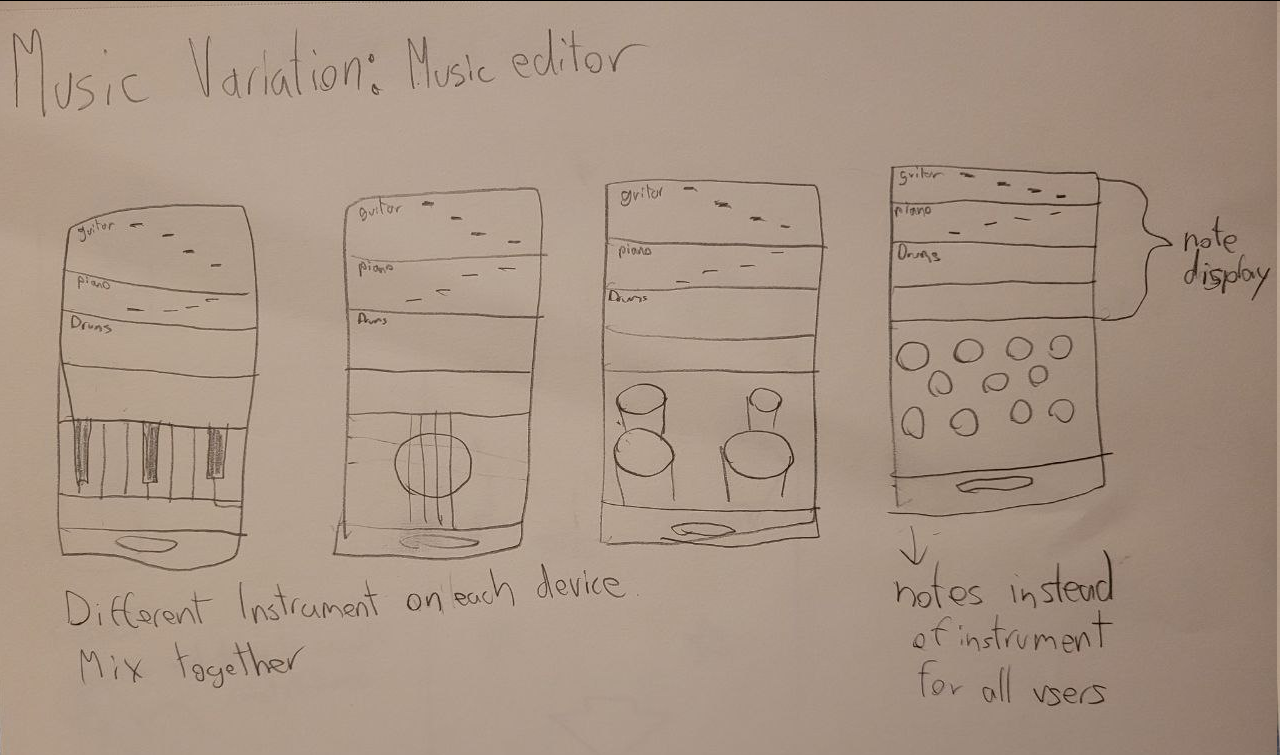 Music Variation: Music editor
guitar
piano
Drums
guitar
piano
Drums
guitar
piano
Drums
guitar
piano
Drums
note
display
Different Instrument on each device
Mix together
notes instead
of instrument
for all users